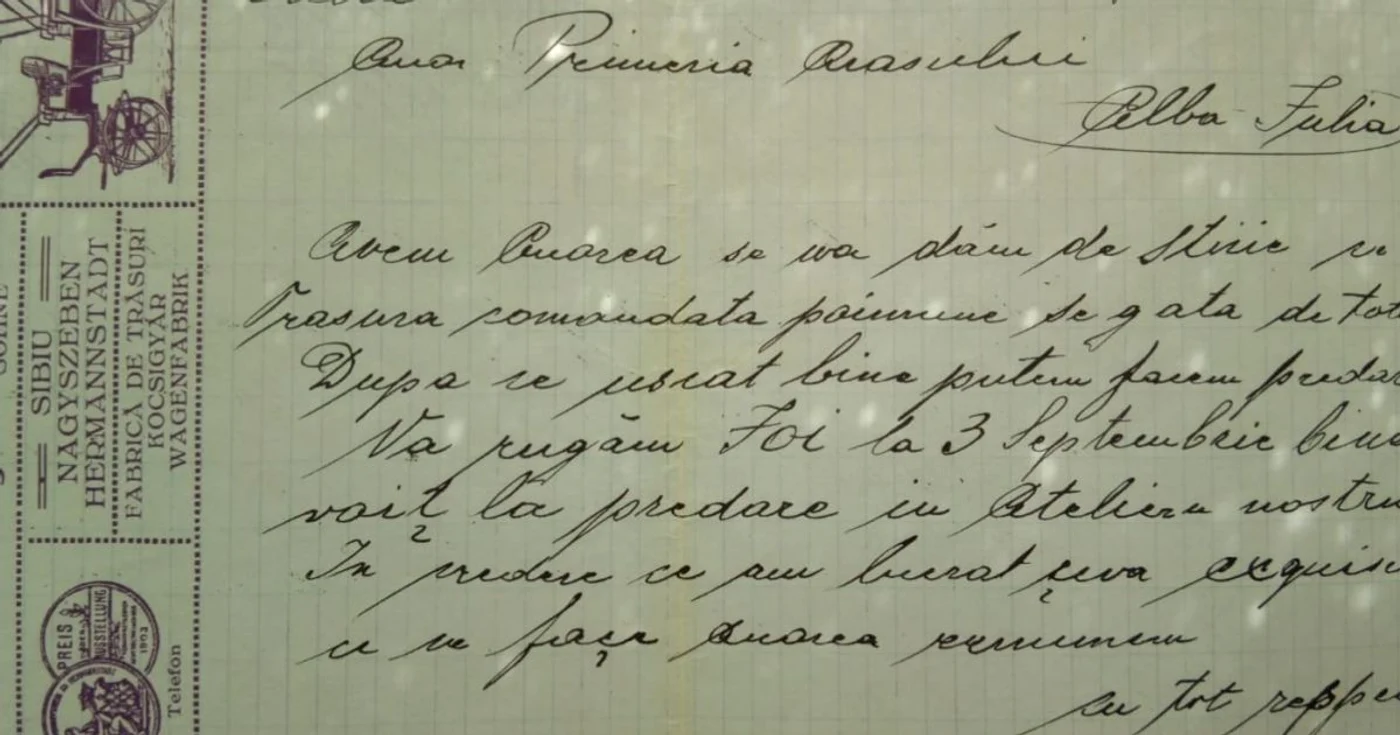 Onor Primeria Orasului
Alba-Iulia
Avem Onorea se va dăm de Stirie
Trasura comandata poimune se gata de tot
Dupa ce uscat bine putem facem predar
Va rugăm Joi la 3 Septembrie bine
voiț la predare in Atelieru nostru
In credere ce am lucrat ceva exquis
ce ne face Onorea
cu tot respe
SIBIU
NAGYSZEBEN
HERMANNSTADT
FABRICĂ DE TRĂSURI
KOCSIGYÁR
WAGENFABRIK
PREIS
AUSSTELLUNG
1903
Telefon